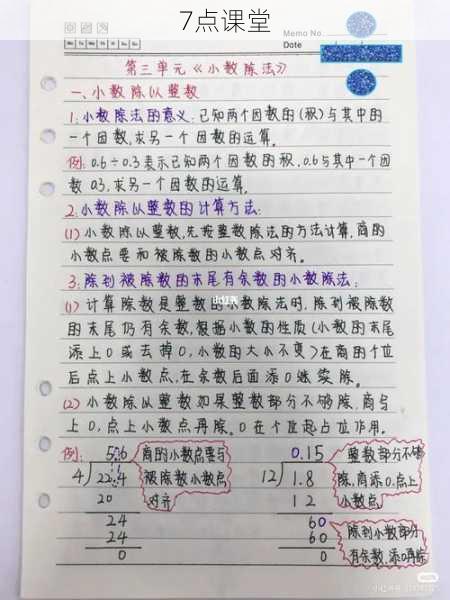 7点课堂
Memo No.
Mo Tu We Th Fr Sa Su
Date
第三单元《小数除法》
一、小数除以整数
1.小数除法的意义:已知两个因数的(积)与其中的
一个因数,求另一个因数的运算。
例:0.6÷0.3表示已知两个因数的积,0.6与其中一个因
数0.3,求另一个因数的运算。
2.小数除以整数的计算方法:
(1)小数除以整数,先按整数除法的方法计算,商的
小数点要和被除数的小数点对齐。
3.除到被除数的末尾有余数的小数除法:
(1)计算除数是整数的小数除法时,除到被除数
的末尾仍有余数,根据小数的性质(小数的末尾
添上0或去掉0,小数的大小不变)在商的个位
后点上小数点,在余数后面添0继续除。
(2)小数除以整数如果整数部分不够除,商写
上0,点上小数点再除。0在个位起占位作用。
例:
5.6
4 22.4
20
24
24
0
商的小数点要与
被除数小数点
对齐
0.15
12 1.8
12
60
60
0
整数部分不够
除,商添0.点上
小数点
除到小数部分
有余数,添0再除
小红书